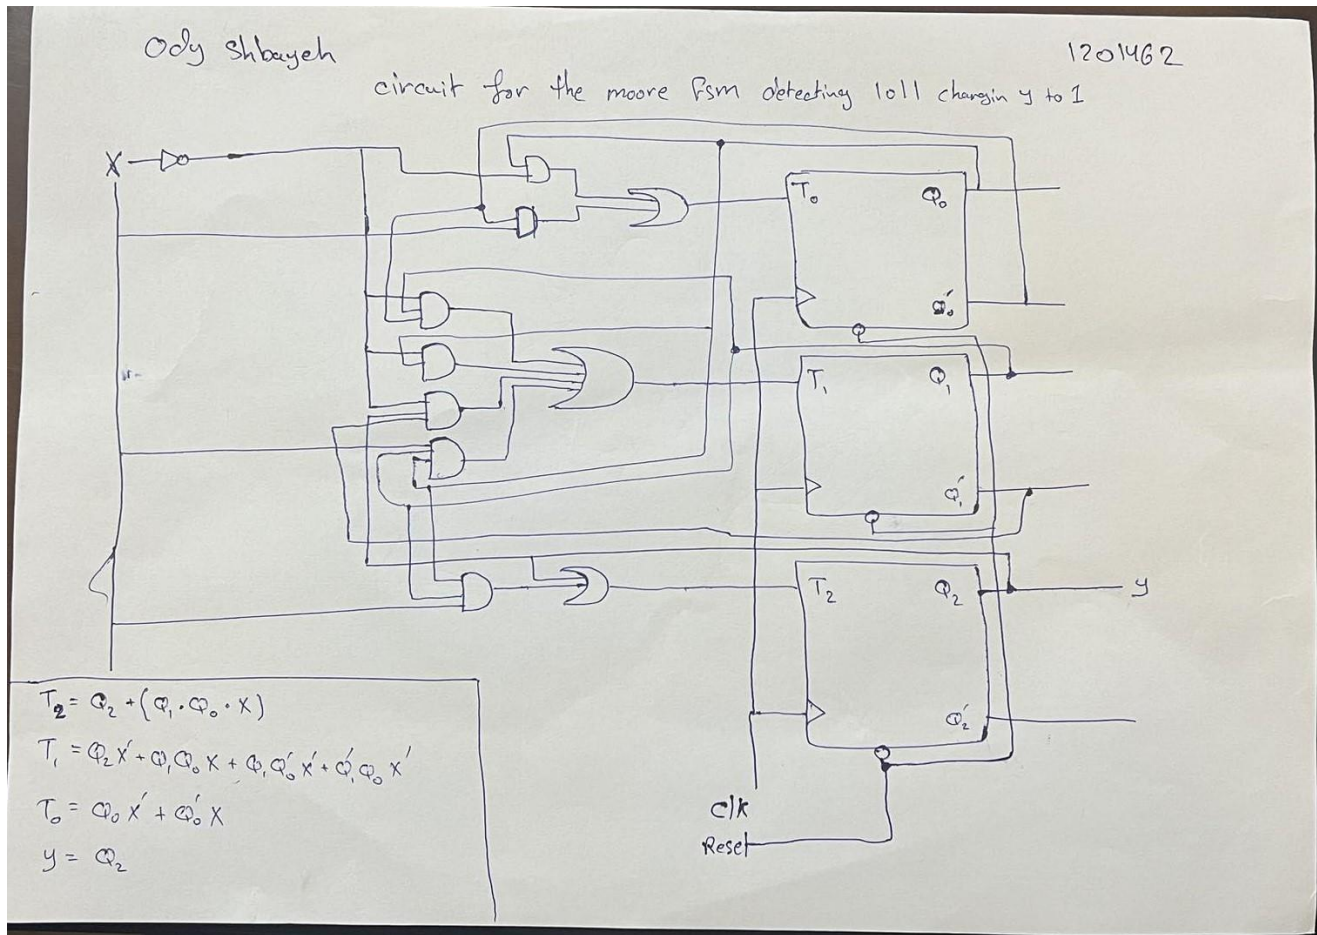 Ody Shbayeh 1201462
circuit for the moore fsm detecting 1011 changin y to 1
X
T₀ Q₀
Q₀'
T₁ Q₁
Q₁'
T₂ Q₂ y
Q₂'
clk
Reset
T₂ = Q₂ + (Q₁ · Q₀ · X)
T₁ = Q₂X' + Q₁Q₀X + Q₁Q₀'X' + Q₁'Q₀X'
T₀ = Q₀X' + Q₀'X
y = Q₂